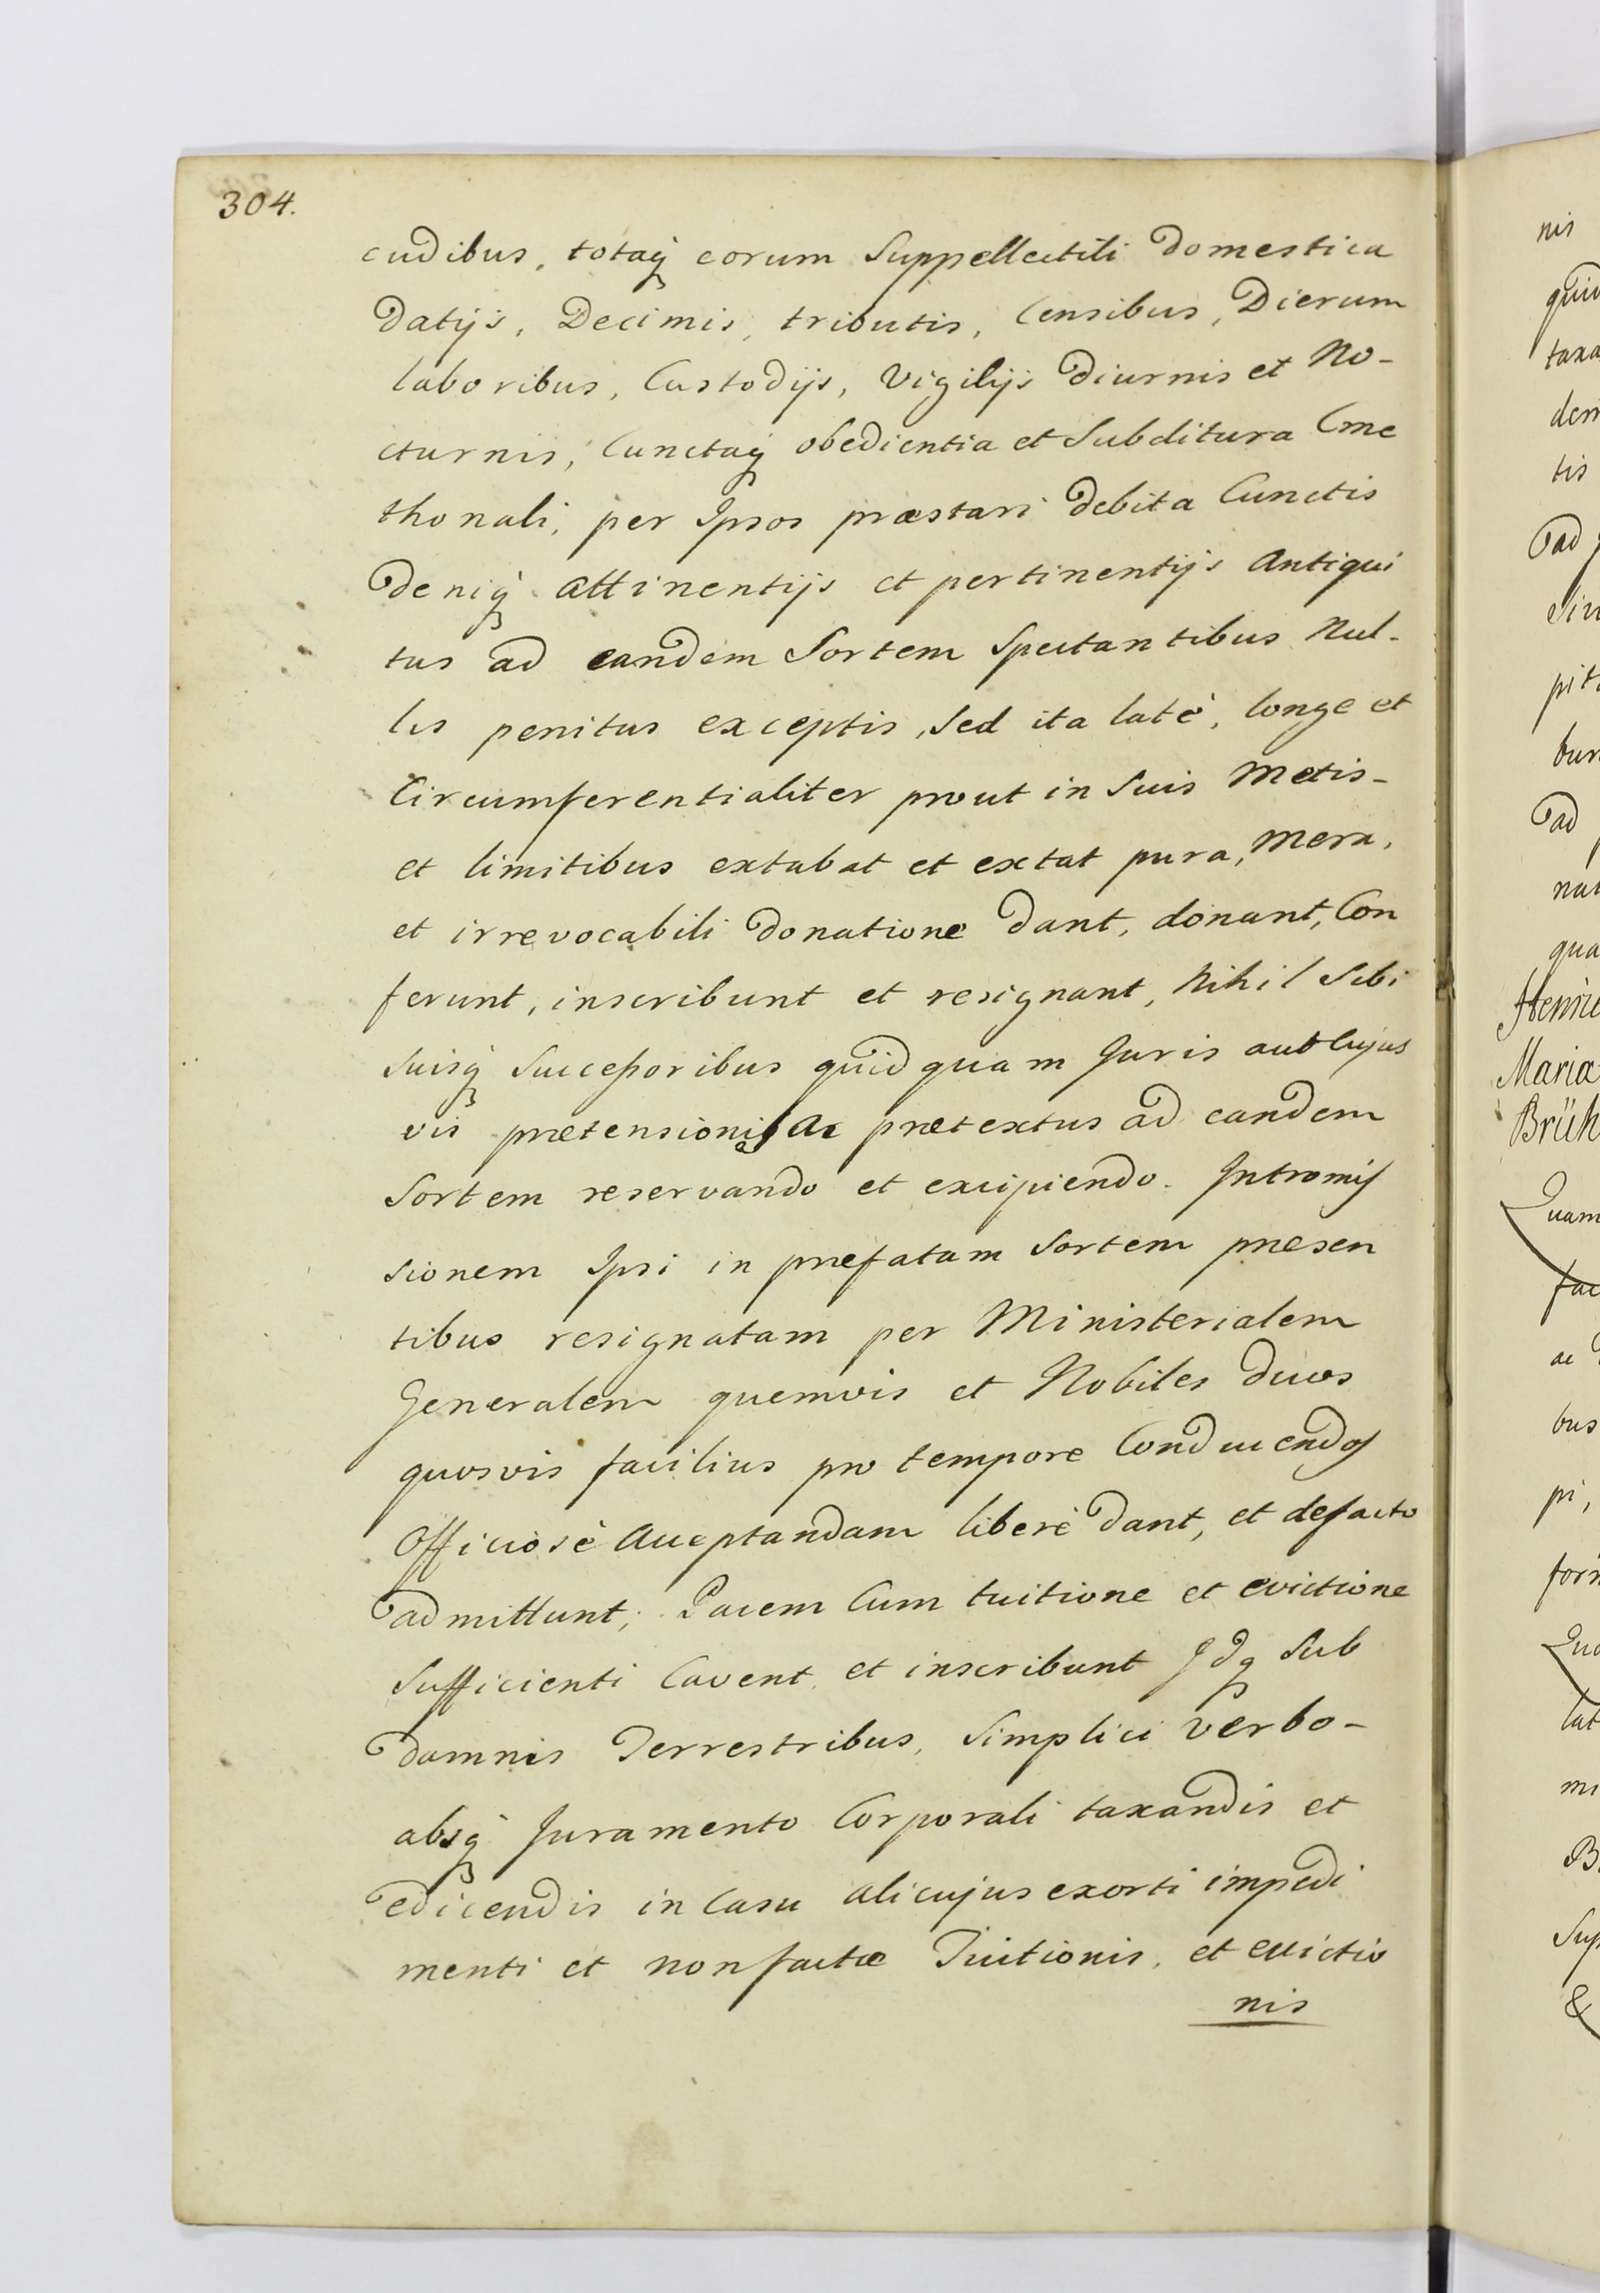 304.
cudibus, totaq̀ eorum Suppellectili Domestica
Datijs, Decimis, tributis, Censibus, Dierum
laboribus, Custodijs, Vigilijs Diurnis et No-
cturnis, Cunctaq̀ obedientia et Subditura Cme
thonali, per Ipsos præstari Debita Cunctis
Deniq̀ attinentijs et pertinentijs Antiqui
tus ad eandem Sortem Spectantibus Nul-
lis penitus exceptis, Sed ita latè, longe et
Circumferentialiter prout in Suis Metis-
et limitibus extabat et extat pura, Mera,
et irrevocabili Donatione Dant, donant, Con
ferunt, inscribunt et resignant, Nihil Sibi
Suisq̀ Succeſsoribus quidquam Juris aut Cujus
vis prætensionis Ac prætextus ad eandem
Sortem reservando et excipiendo. Intromiſ
sionem Ipsi in præfatam Sortem præsen
tibus resignatam per Ministerialem
Generalem quemvis et Nobiles Duos
quosvis facilius pro tempore Conducendos
Officiosè Acceptandam liberè Dant, et defacto
admittunt; Pacem Cum tuitione et evictione
Sufficienti Cavent et inscribunt Idq Sub
Damnis Terrestribus, Simplici Verbo-
absq̀ Juramento Corporali taxandis et
edicendis in Casu alicujus exorti impedi
menti et non factæ Tuitionis, et evictio
nis
nis
tis
Maria
Brüh
bus
pi,
&